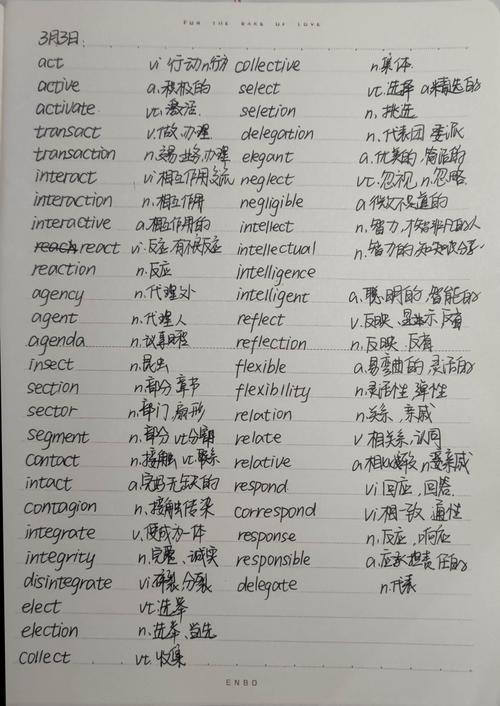 FOR THE SAKE OF LOVE
3月3日.
act vi 行动 n行为 collective n.集体
active a.积极的 select vt.选择 a精选的
activate vt.激活 seletion n.挑选
transact v.做.办理 delegation n.代表团 委派
transaction n.交易 业务.办理 elegant a.优美的,简洁的
interact vi相互作用 交流 neglect vt.忽视 n.忽略
interaction n.相互作用 negligible a.微不足道的
interactive a.相互作用的 intellect n.智力,才智非凡的人
react vi.反应,有不良反应 intellectual n.智力的
reaction n.反应 intelligence
agency n.代理处 intelligent a.聪明的,智能的
agent n.代理人 reflect v.反映,显示
agenda n.议事日程 reflection n.反映
insect n.昆虫 flexible a.易弯曲的,灵活的
section n.部分 章节 flexibility n.灵活性,弹性
sector n.部门,扇形 relation n.关系,亲戚
segment n.部分 vt分割 relate v 相关系,认同
contact n.接触 vt.联系 relative a相似 n亲戚
intact a.完好无缺的 respond vi回应,回答.
contagion n.接触传染 correspond vi.相一致,通信
integrate v.使成为一体 response n.反应,响应
integrity n.完整、诚实 responsible a.应承担责任的
disintegrate vi.碎裂,分裂 delegate n.代表
elect vt.选举
election n.选举、当选
collect vt.收集
ENBO